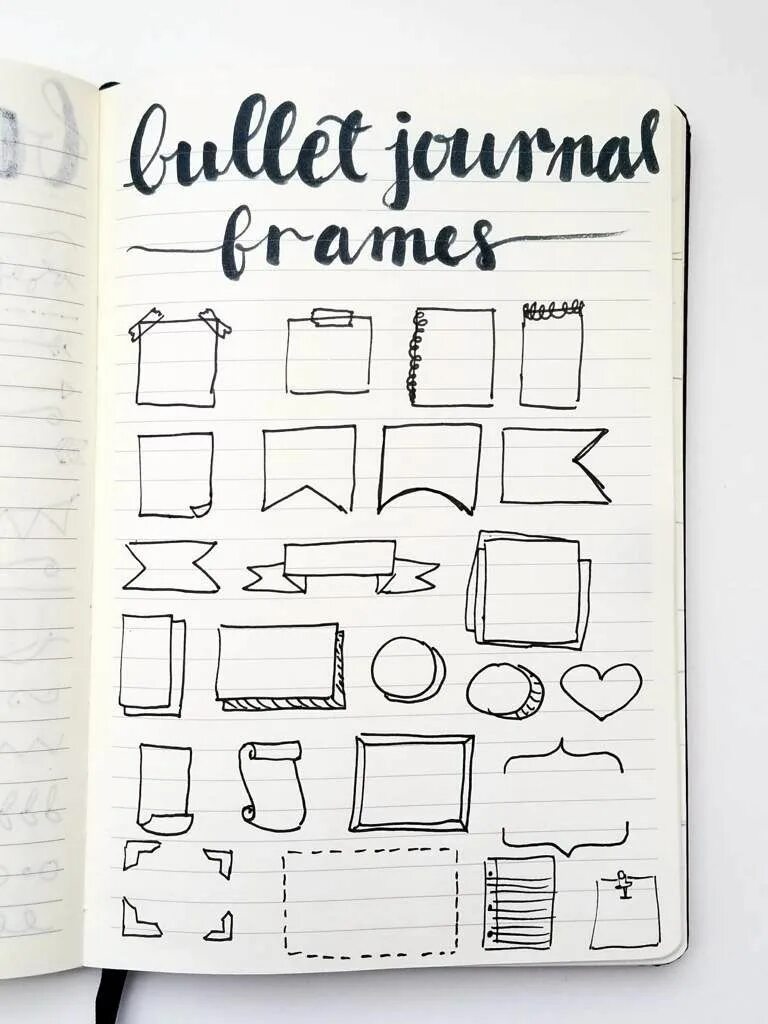 bullet journal
frames